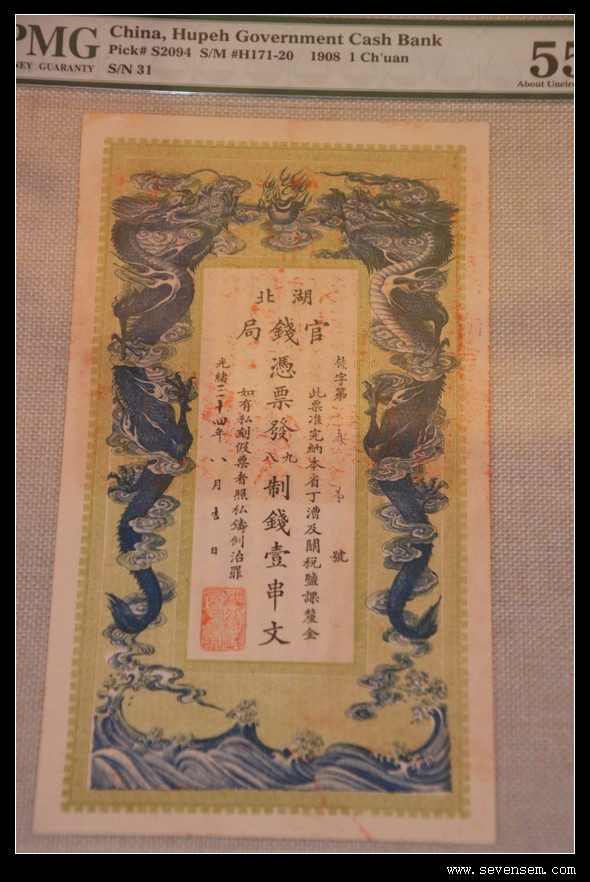 PMG
NEY GUARANTY
China, Hupeh Government Cash Bank
Pick# S2094 S/M #H171-20 1908 1 Ch'uan
S/N 31
55
About Uncirc
湖北
官錢局
字第
號
此票准完納本省丁漕及關稅鹽課釐金
憑票發九八制錢壹串文
如有私刻假票者照私鑄例治罪
光緒三十四年八月吉日
www.sevensem.com